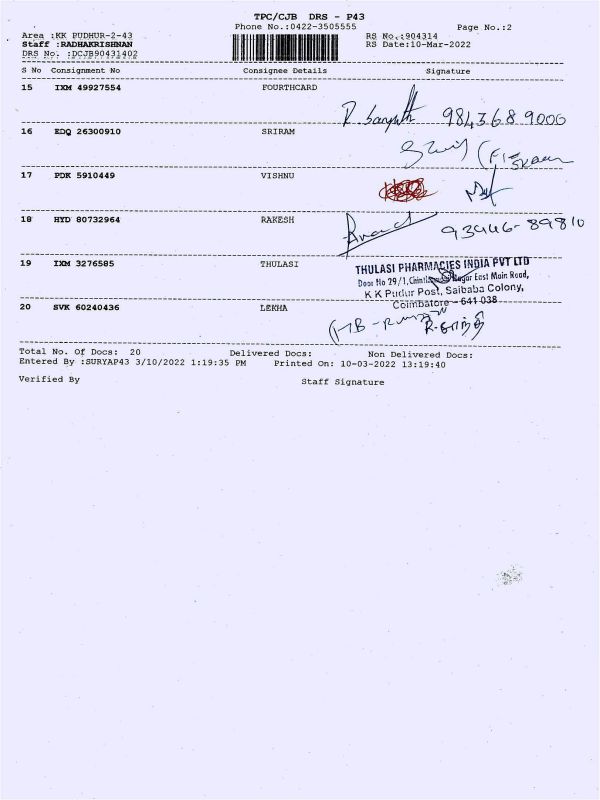 TPC/CJB DRS - P43
Phone No.:0422-3505555 Page No.:2
Area :KK PUDHUR-2-43 RS No.:904314
Staff :RADHAKRISHNAN RS Date:10-Mar-2022
DRS No. :DCJB90431402
S No Consignment No Consignee Details Signature
15 IXM 49927554 FOURTHCARD
984368 9000
16 EDQ 26300910 SRIRAM
17 PDK 5910449 VISHNU
18 HYD 80732964 RAKESH
93446-89810
19 IXM 3276585 THULASI
THULASI PHARMACIES INDIA PVT LTD
Door No 29/1, Nagar East Main Road,
K K Pudur Post, Saibaba Colony,
Coimbatore - 641 038
20 SVK 60240436 LEKHA
Total No. Of Docs: 20 Delivered Docs: Non Delivered Docs:
Entered By :SURYAP43 3/10/2022 1:19:35 PM Printed On: 10-03-2022 13:19:40
Verified By Staff Signature